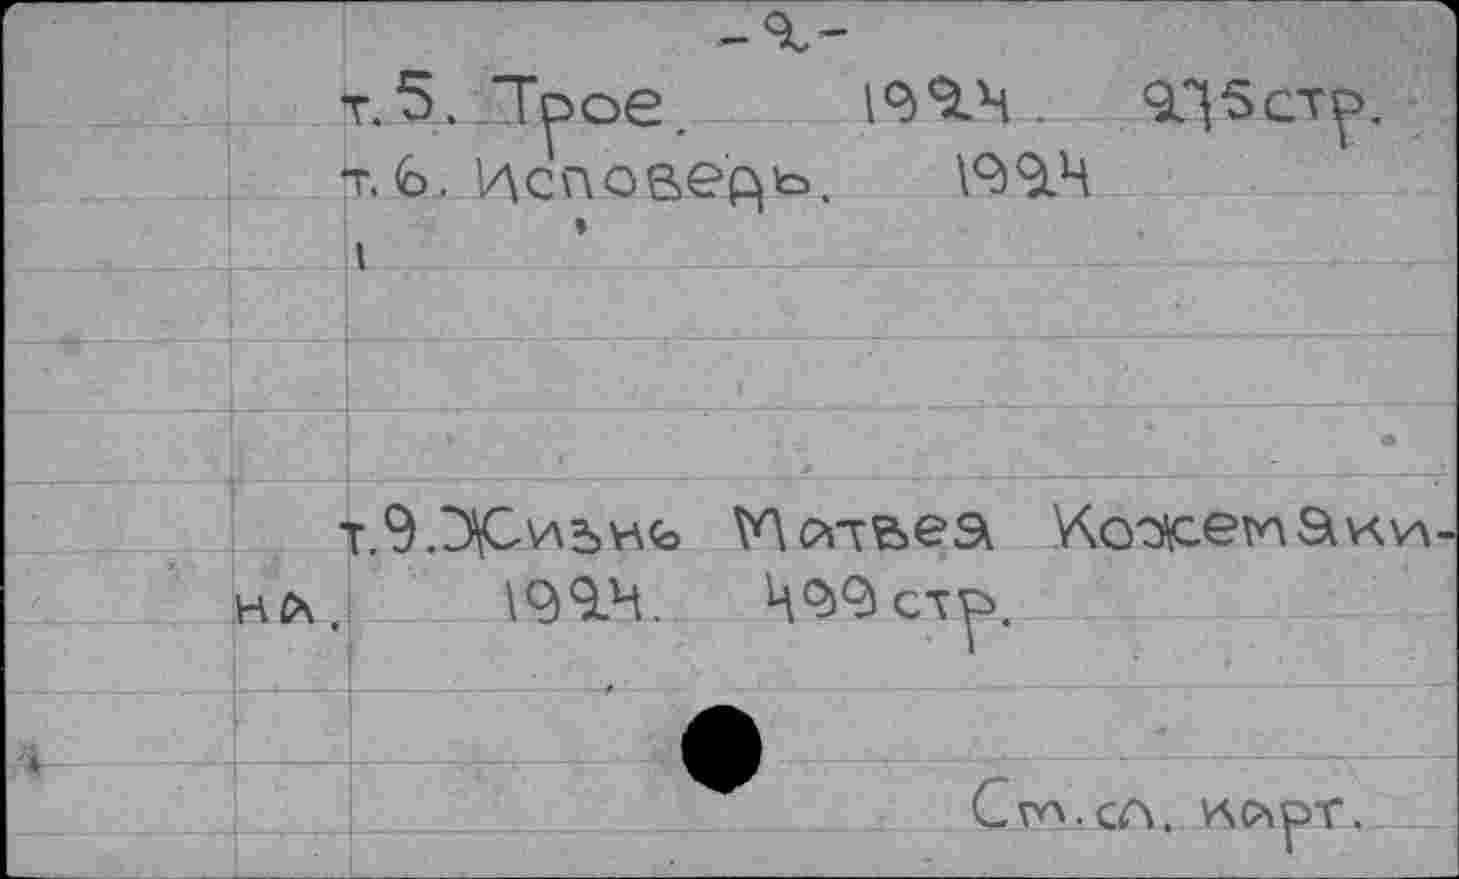 -2-
т.5. Трое. 1924. 275стр.
т.6. Исповедь. 1924
т.9. Жизнь Матвея Кожемяки-
на. 1924. 499 стр.
См. сл. карт.